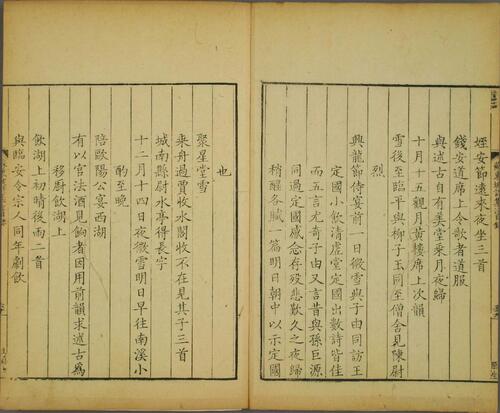 姪安節遠来夜坐三首
錢安道席上令歌者道服
與述古自有美堂乗月夜歸
十月十五觀月黄樓席上次韻
雪後至臨平與柳子玉同至僧舍見陳尉
烈
興龍節侍宴前一日微雪與子由同訪王
定國小飲清虛堂定國出數詩皆佳
而五言尤奇子由又言昔與孫巨源
同過定國感念存殁悲歎久之夜歸
稍醒各賦一篇明日朝中以示定國
也
聚星堂雪
乗舟過賈收水閣收不在見其子三首
城南縣尉水亭得長字
十二月十四日夜微雪明日早往南溪小
酌至晚
陪歐陽公宴西湖
有以官法酒見餉者因用前韻求述古爲
移厨飲湖上
飲湖上初晴後雨二首
與臨安令宗人同年劇飲